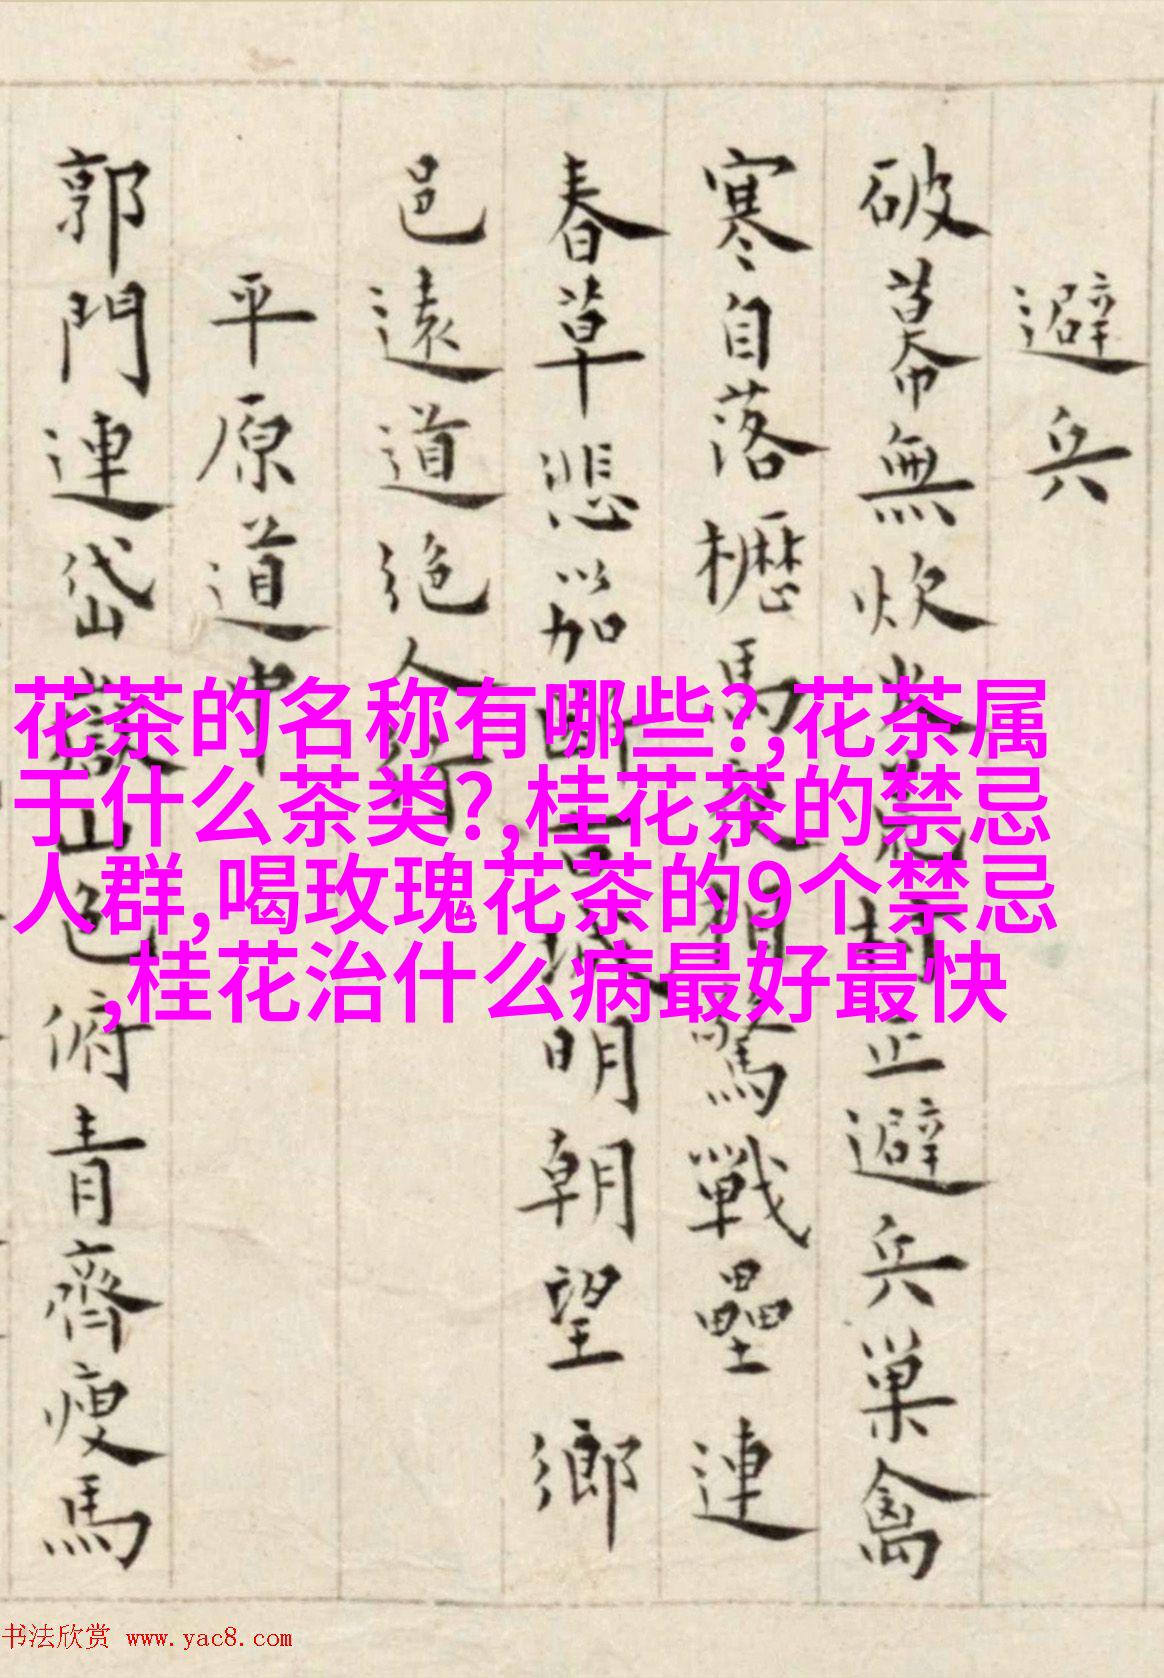 避兵
破幕無炊村正避兵巢禽
寒自落櫪馬夜相驚戰壘連
春草悲笳斷古城明朝望鄉
邑遠道絕人行
平原道中
郭門連岱嶽山色俯青齊瘦馬
花茶的名称有哪些?,花茶属
于什么茶类?,桂花茶的禁忌
人群,喝玫瑰花茶的9个禁忌
,桂花治什么病最好最快
书法欣赏 www.yac8.com